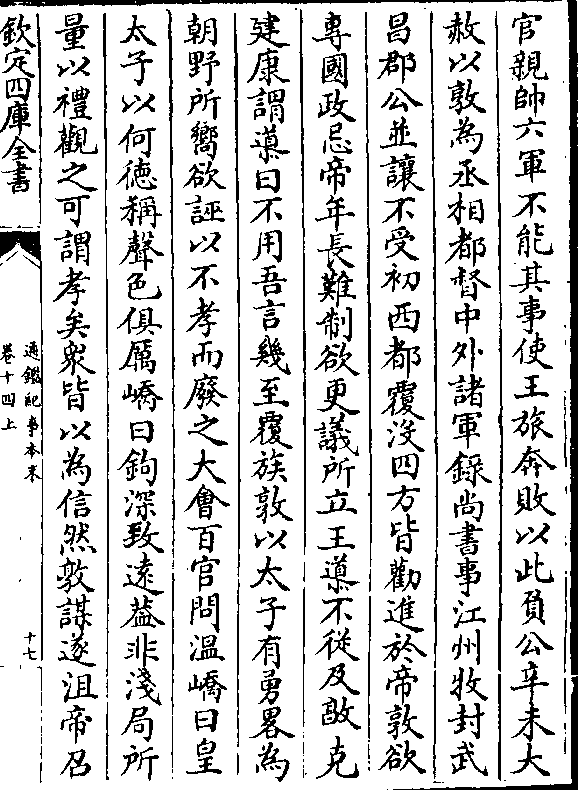 官親帥六軍不能其事使王旅奔敗以此負公辛未大
赦以敦為丞相都督中外諸軍録尚書事江州牧封武
昌郡公並讓不受初西都覆沒四方皆勸進於帝敦欲
專國政忌帝年長難制欲更議所立王導不從及敦克
建康謂導曰不用吾言幾至覆族敦以太子有勇畧為
朝野所嚮欲誣以不孝而廢之大會百官問溫嶠曰皇
太子以何徳稱聲色俱厲嶠曰鉤深致遠葢非淺局所
量以禮觀之可謂孝矣衆皆以為信然敦謀遂沮帝召
欽定四庫全書
通鑑紀事本末
卷十四上
十七